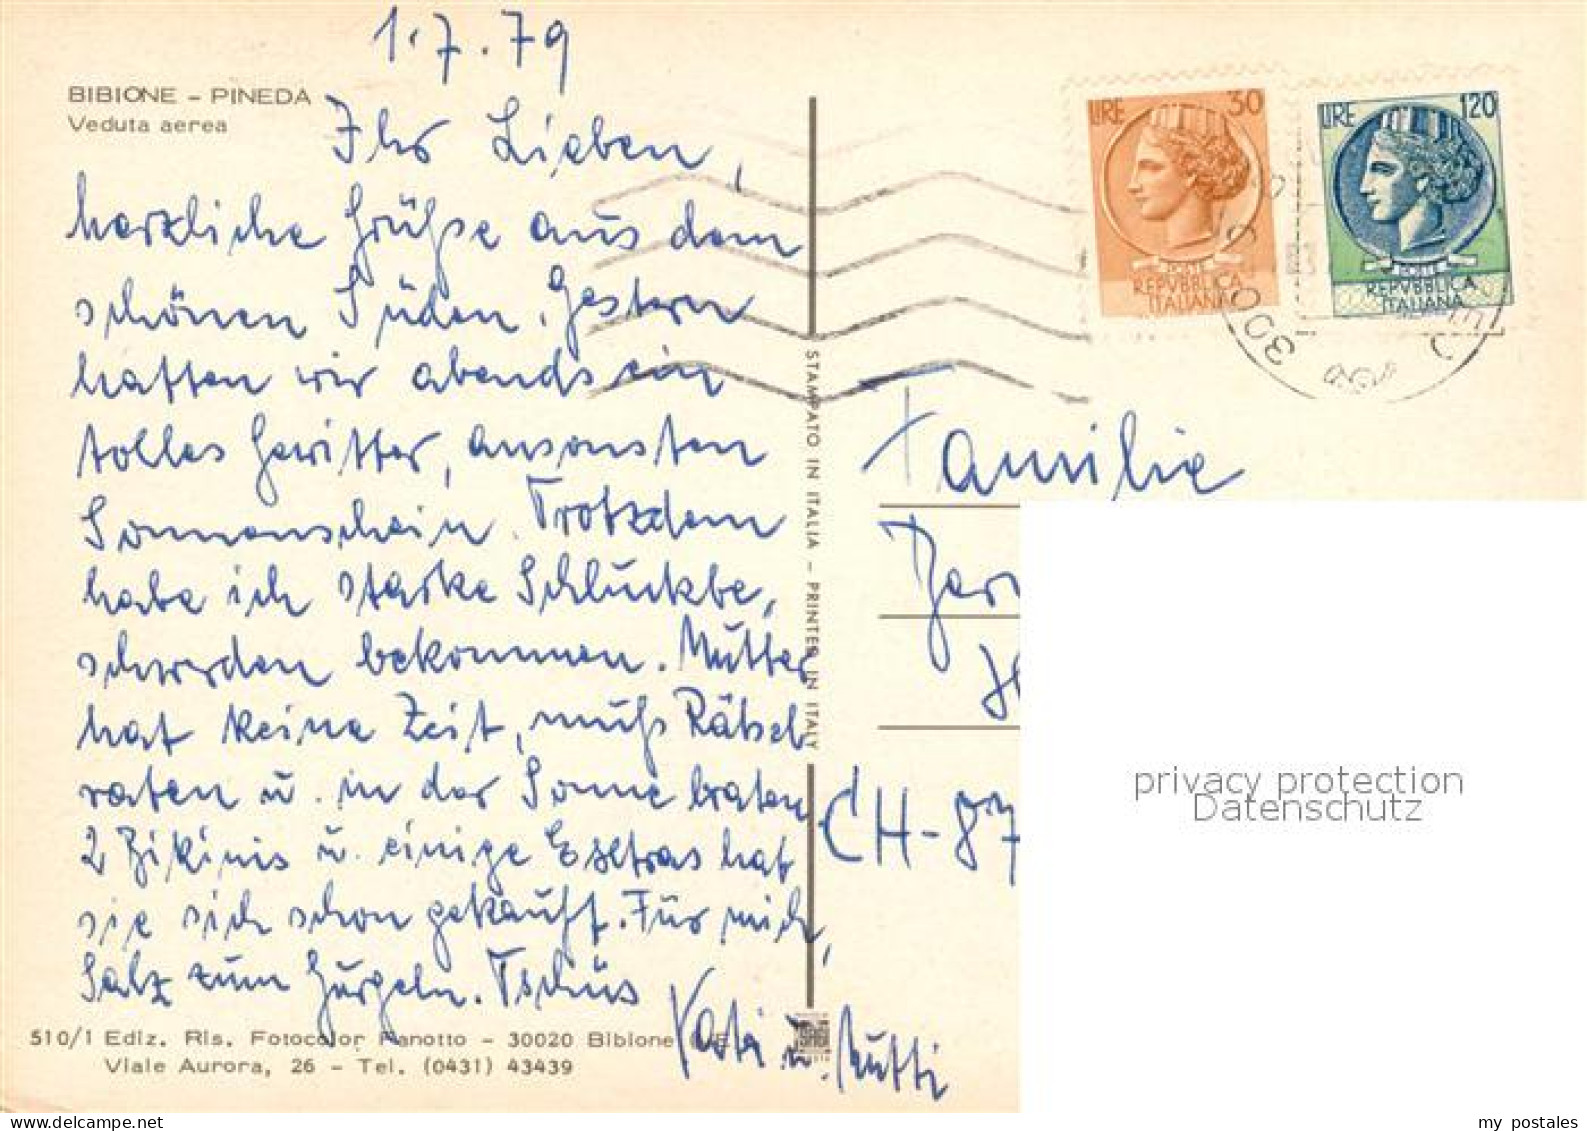 1.7.79
BIBIONE - PINEDA
Veduta aerea
Ihr Lieben,
herzliche Grüße aus dem
schönen Süden. Gestern
hatten wir abends ein
tolles Gewitter, ansonsten
Sonnenschein. Trotzdem
habe ich starke Schluckbe,
schwerden bekommen. Mutter
hat keine Zeit, muß Rätsel
raten u. in der Sonne braten
2 Bikinis u. einige Esxtras hat
sie sich schon gekauft. Für mich,
Salz zum Gurgeln. Tschüs
Kati u. Mutti
510/1 Ediz. Ris. Fotocolor Panotto - 30020 Bibione (VE)
Viale Aurora, 26 - Tel. (0431) 43439
STAMPATO IN ITALIA - PRINTED IN ITALY
LIRE 30
POSTE
REPVBBLICA
ITALIANA
LIRE 120
POSTE
REPVBBLICA
ITALIANA
Familie
CH-87
privacy protection
Datenschutz
my postales
delcampe.net